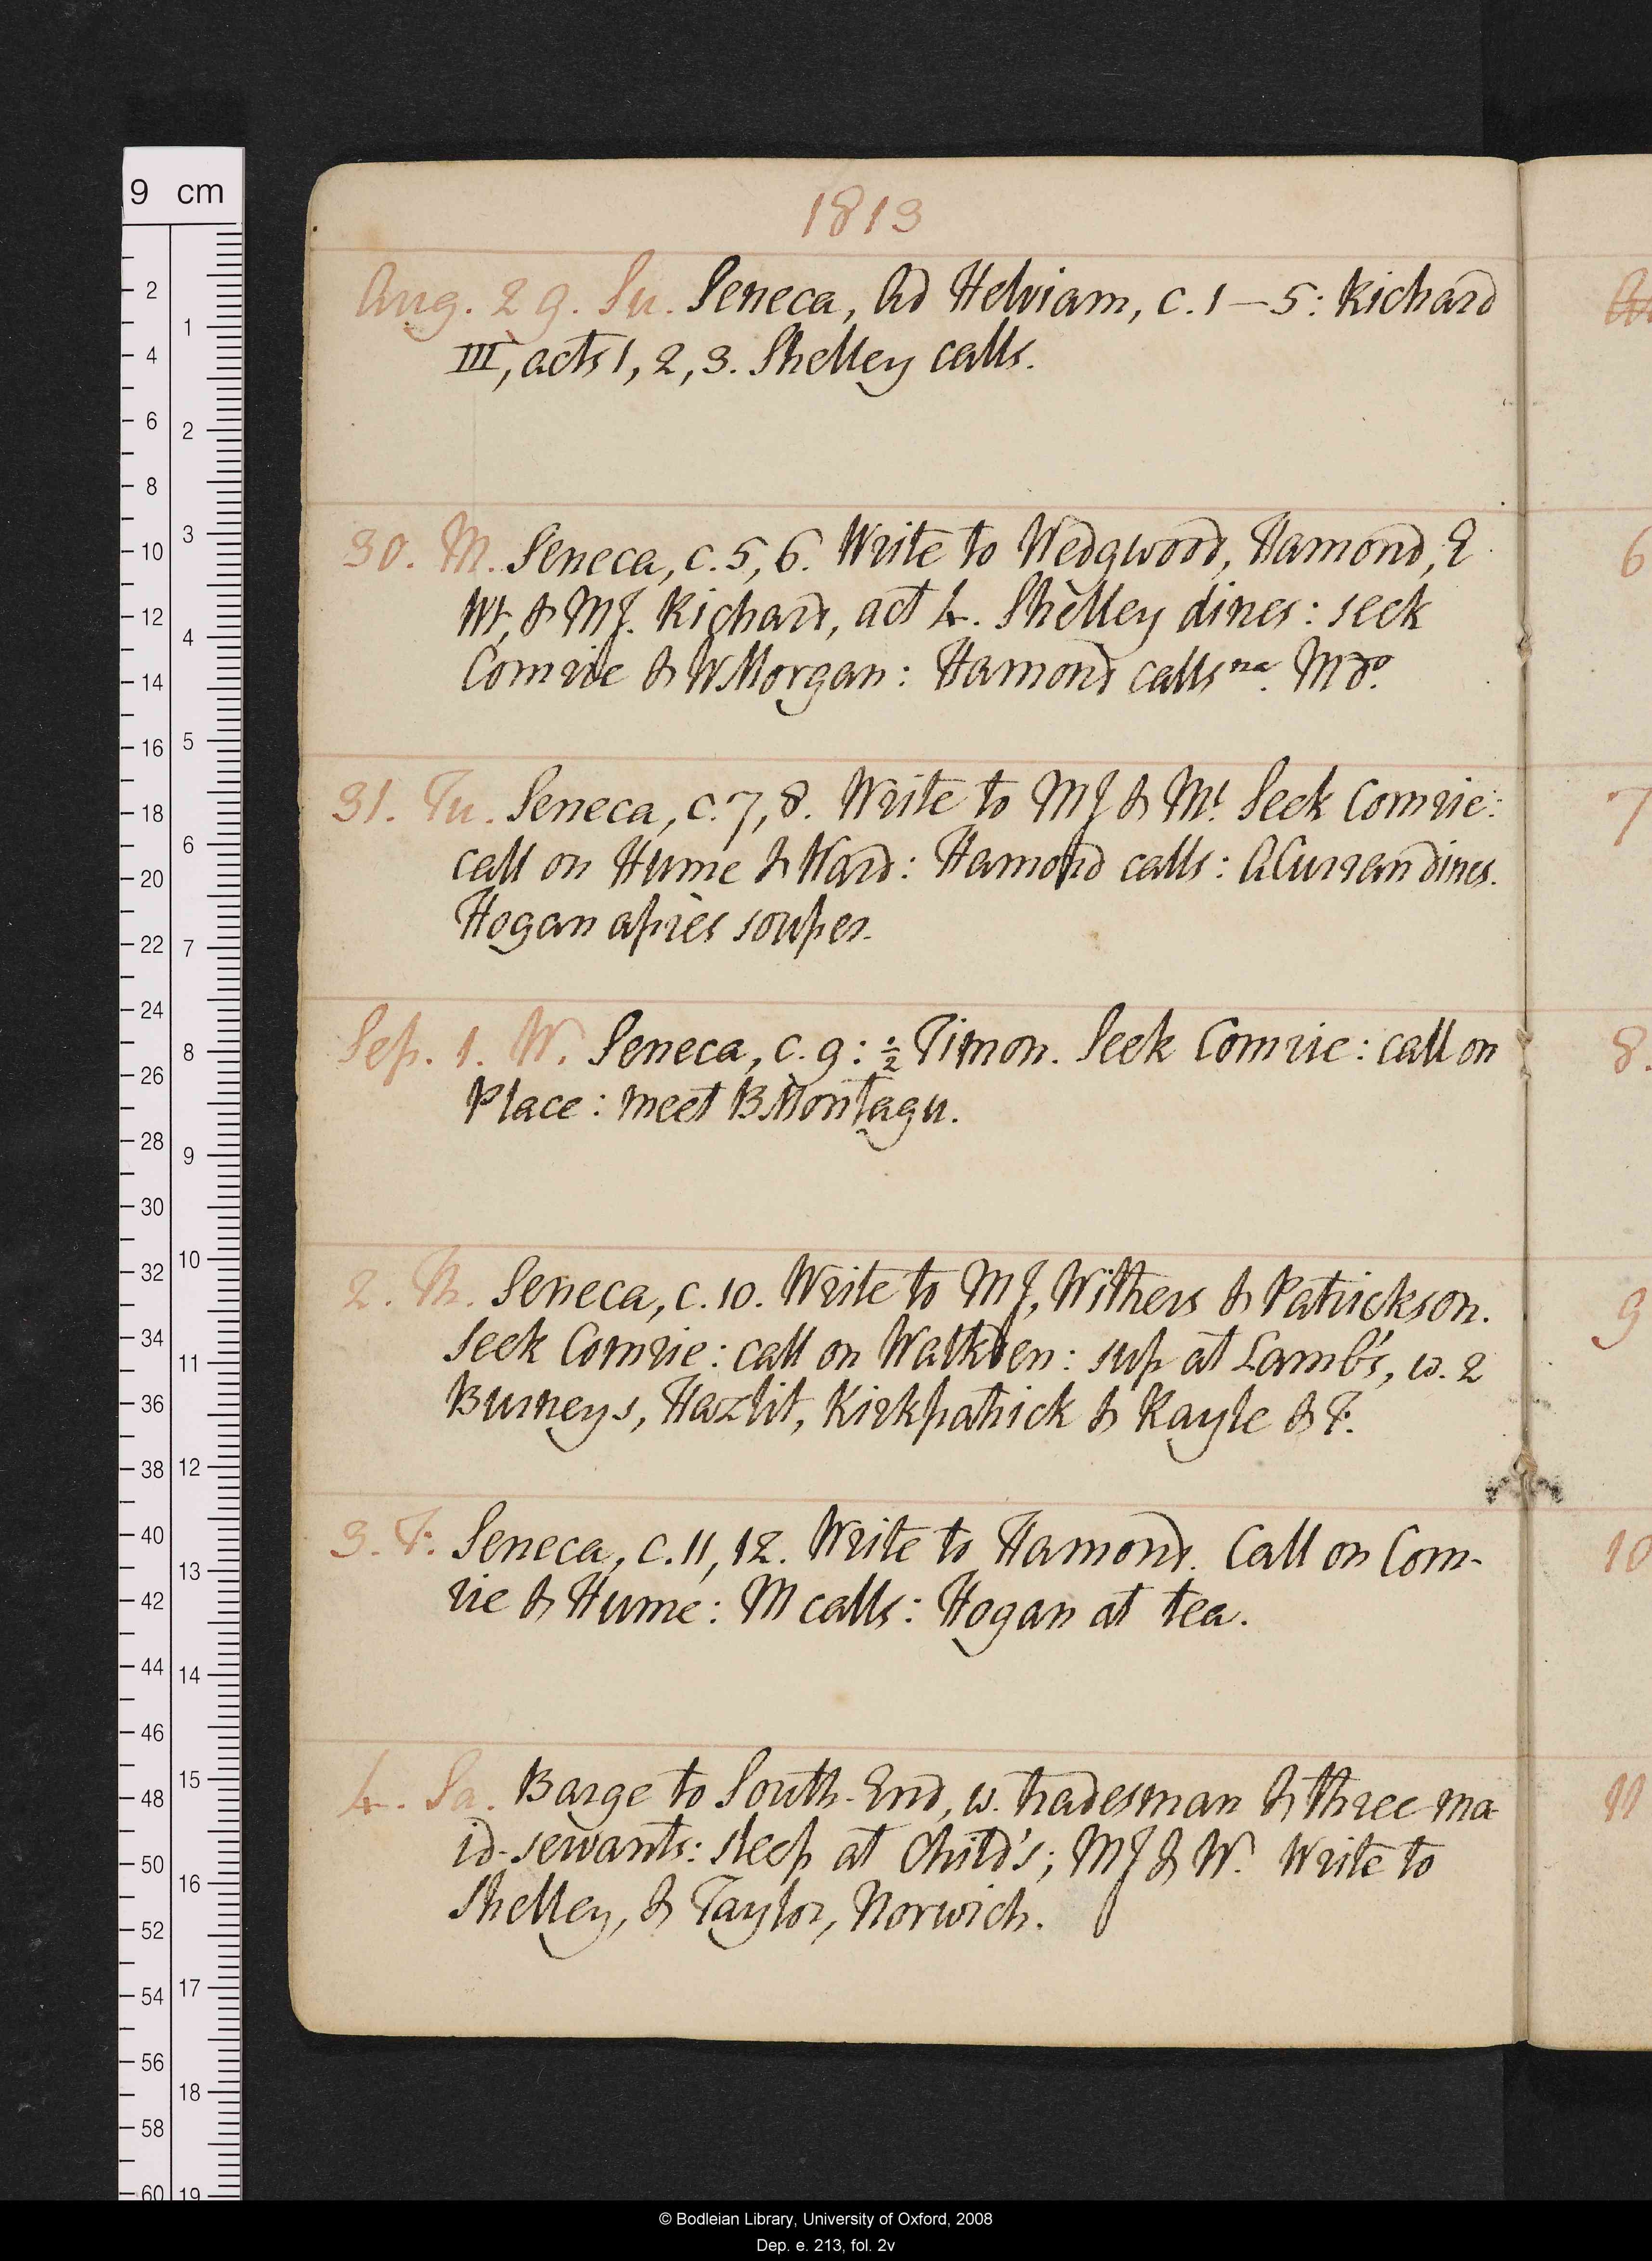 9 cm
1813
Aug. 29. Su. Seneca, Ad Helviam, c. 1–5: Richard
III, acts 1, 2, 3. Shelley calls.
30. M. Seneca, c. 5, 6. Write to Wedgwood, Hamond, E
Wt, & MJ. Richard, act 4. Shelley dines: seek
Comrie & WMorgan: Hamond calls na. M do.
31. Tu. Seneca, c. 7, 8. Write to MJ & Mt. Seek Comrie:
call on Hume & Ward: Hamond calls: ACurran dines.
Hogan après souper.
Sep. 1. W. Seneca, c. 9: ½ Timon. Seek Comrie: call on
Place: meet BMontagu.
2. Th. Seneca, c. 10. Write to MJ, Withers & Patrickson.
Seek Comrie: call on Walkden: sup at Lamb's, w. 2
Burneys, Hazlit, Kirkpatrick & Rayle & F.
3. F. Seneca, c. 11, 12. Write to Hamond. Call on Com-
rie & Hume: M calls: Hogan at tea.
4. Sa. Barge to South-End, w. tradesman & three ma-
id-servants: sleep at Child's; MJ & W. Write to
Shelley, & Taylor, Norwich.
6
7
8.
9
10
11
© Bodleian Library, University of Oxford, 2008
Dep. e. 213, fol. 2v